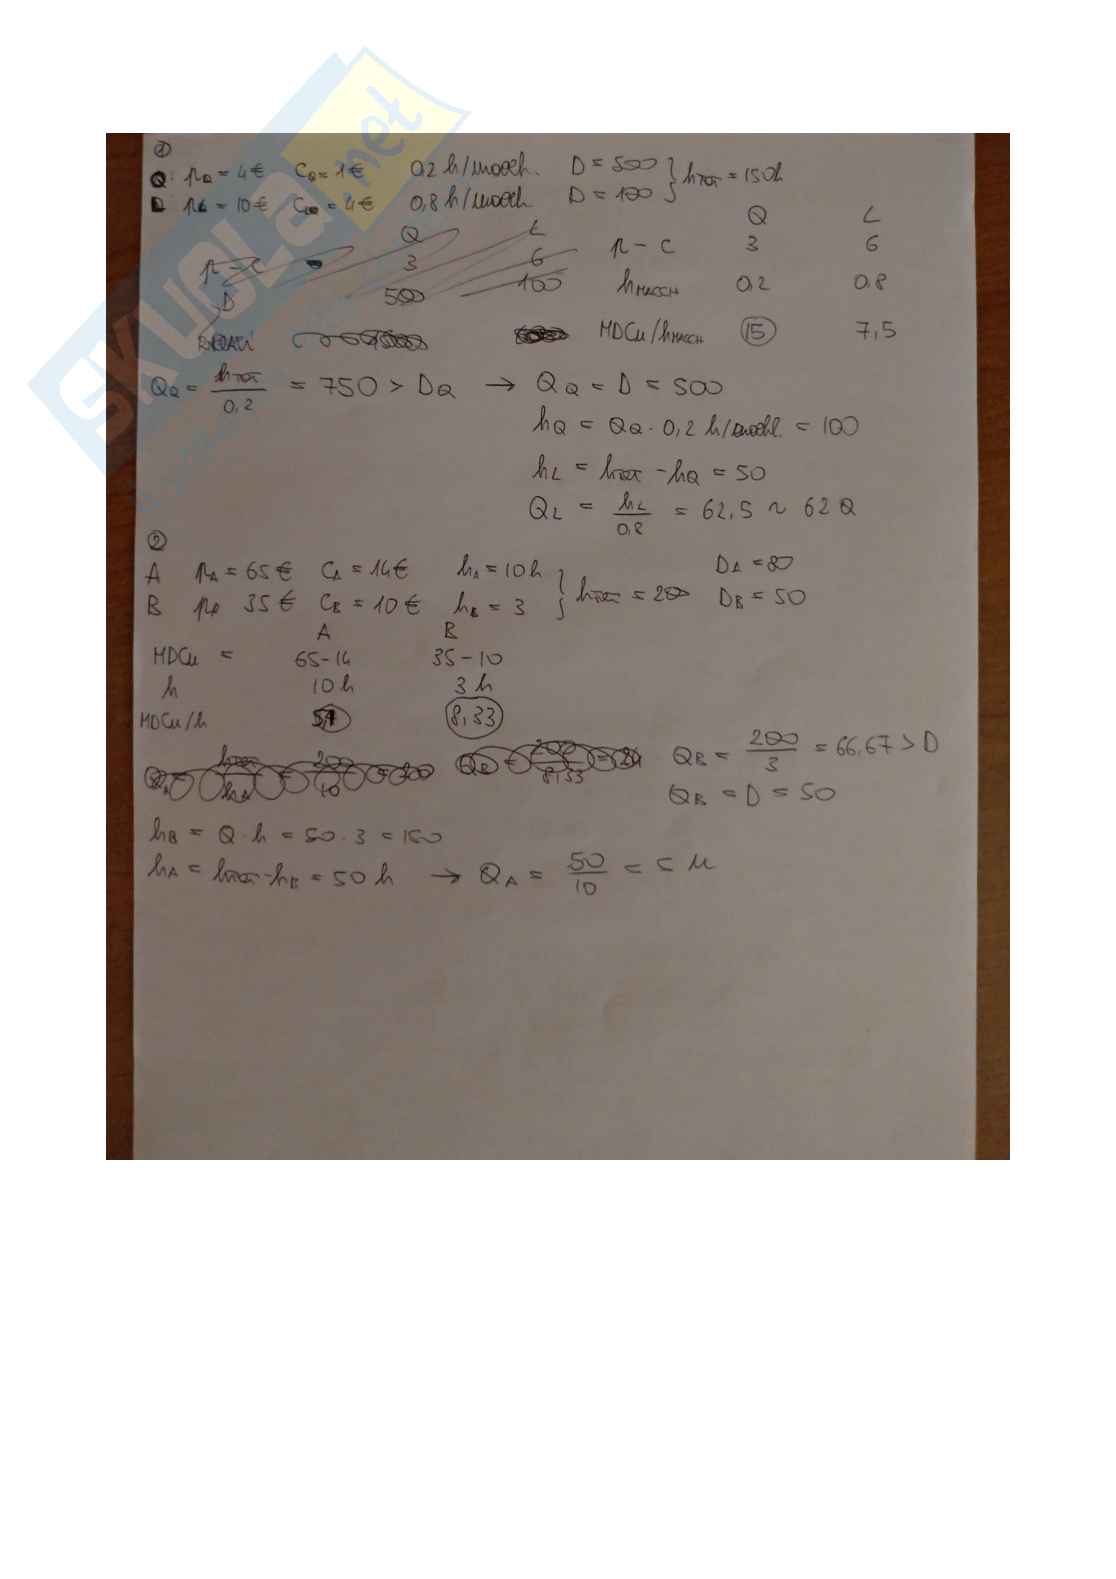 SKUOLA.net
①
Q: pQ = 4€ CQ = 1€ 0,2 h/macch. D = 500 } hTOT = 150h
L pL = 10€ C = 4€ 0,8 h/macch. D = 100
Q L
p - c 3 6
D 500 100
Q L
p - c 3 6
hMACCH 0,2 0,8
MDCu/hMACCH 15 7,5
QQ = hTOT / 0,2 = 750 > DQ → QQ = D = 500
hQ = QQ · 0,2 h/macch. = 100
hL = hTOT - hQ = 50
QL = hL / 0,8 = 62,5 ~ 62 Q
②
A pA = 65€ CA = 14€ hA = 10h } hTOT = 200 DA = 80
B p 35€ CB = 10€ hB = 3 DB = 50
A B
MDCu = 65-14 35-10
h 10h 3h
MDCu/h 8,33
QB = 200 / 3 = 66,67 > D
QB = D = 50
hB = Q · h = 50 · 3 = 150
hA = hTOT - hB = 50 h → QA = 50 / 10 = 5 u